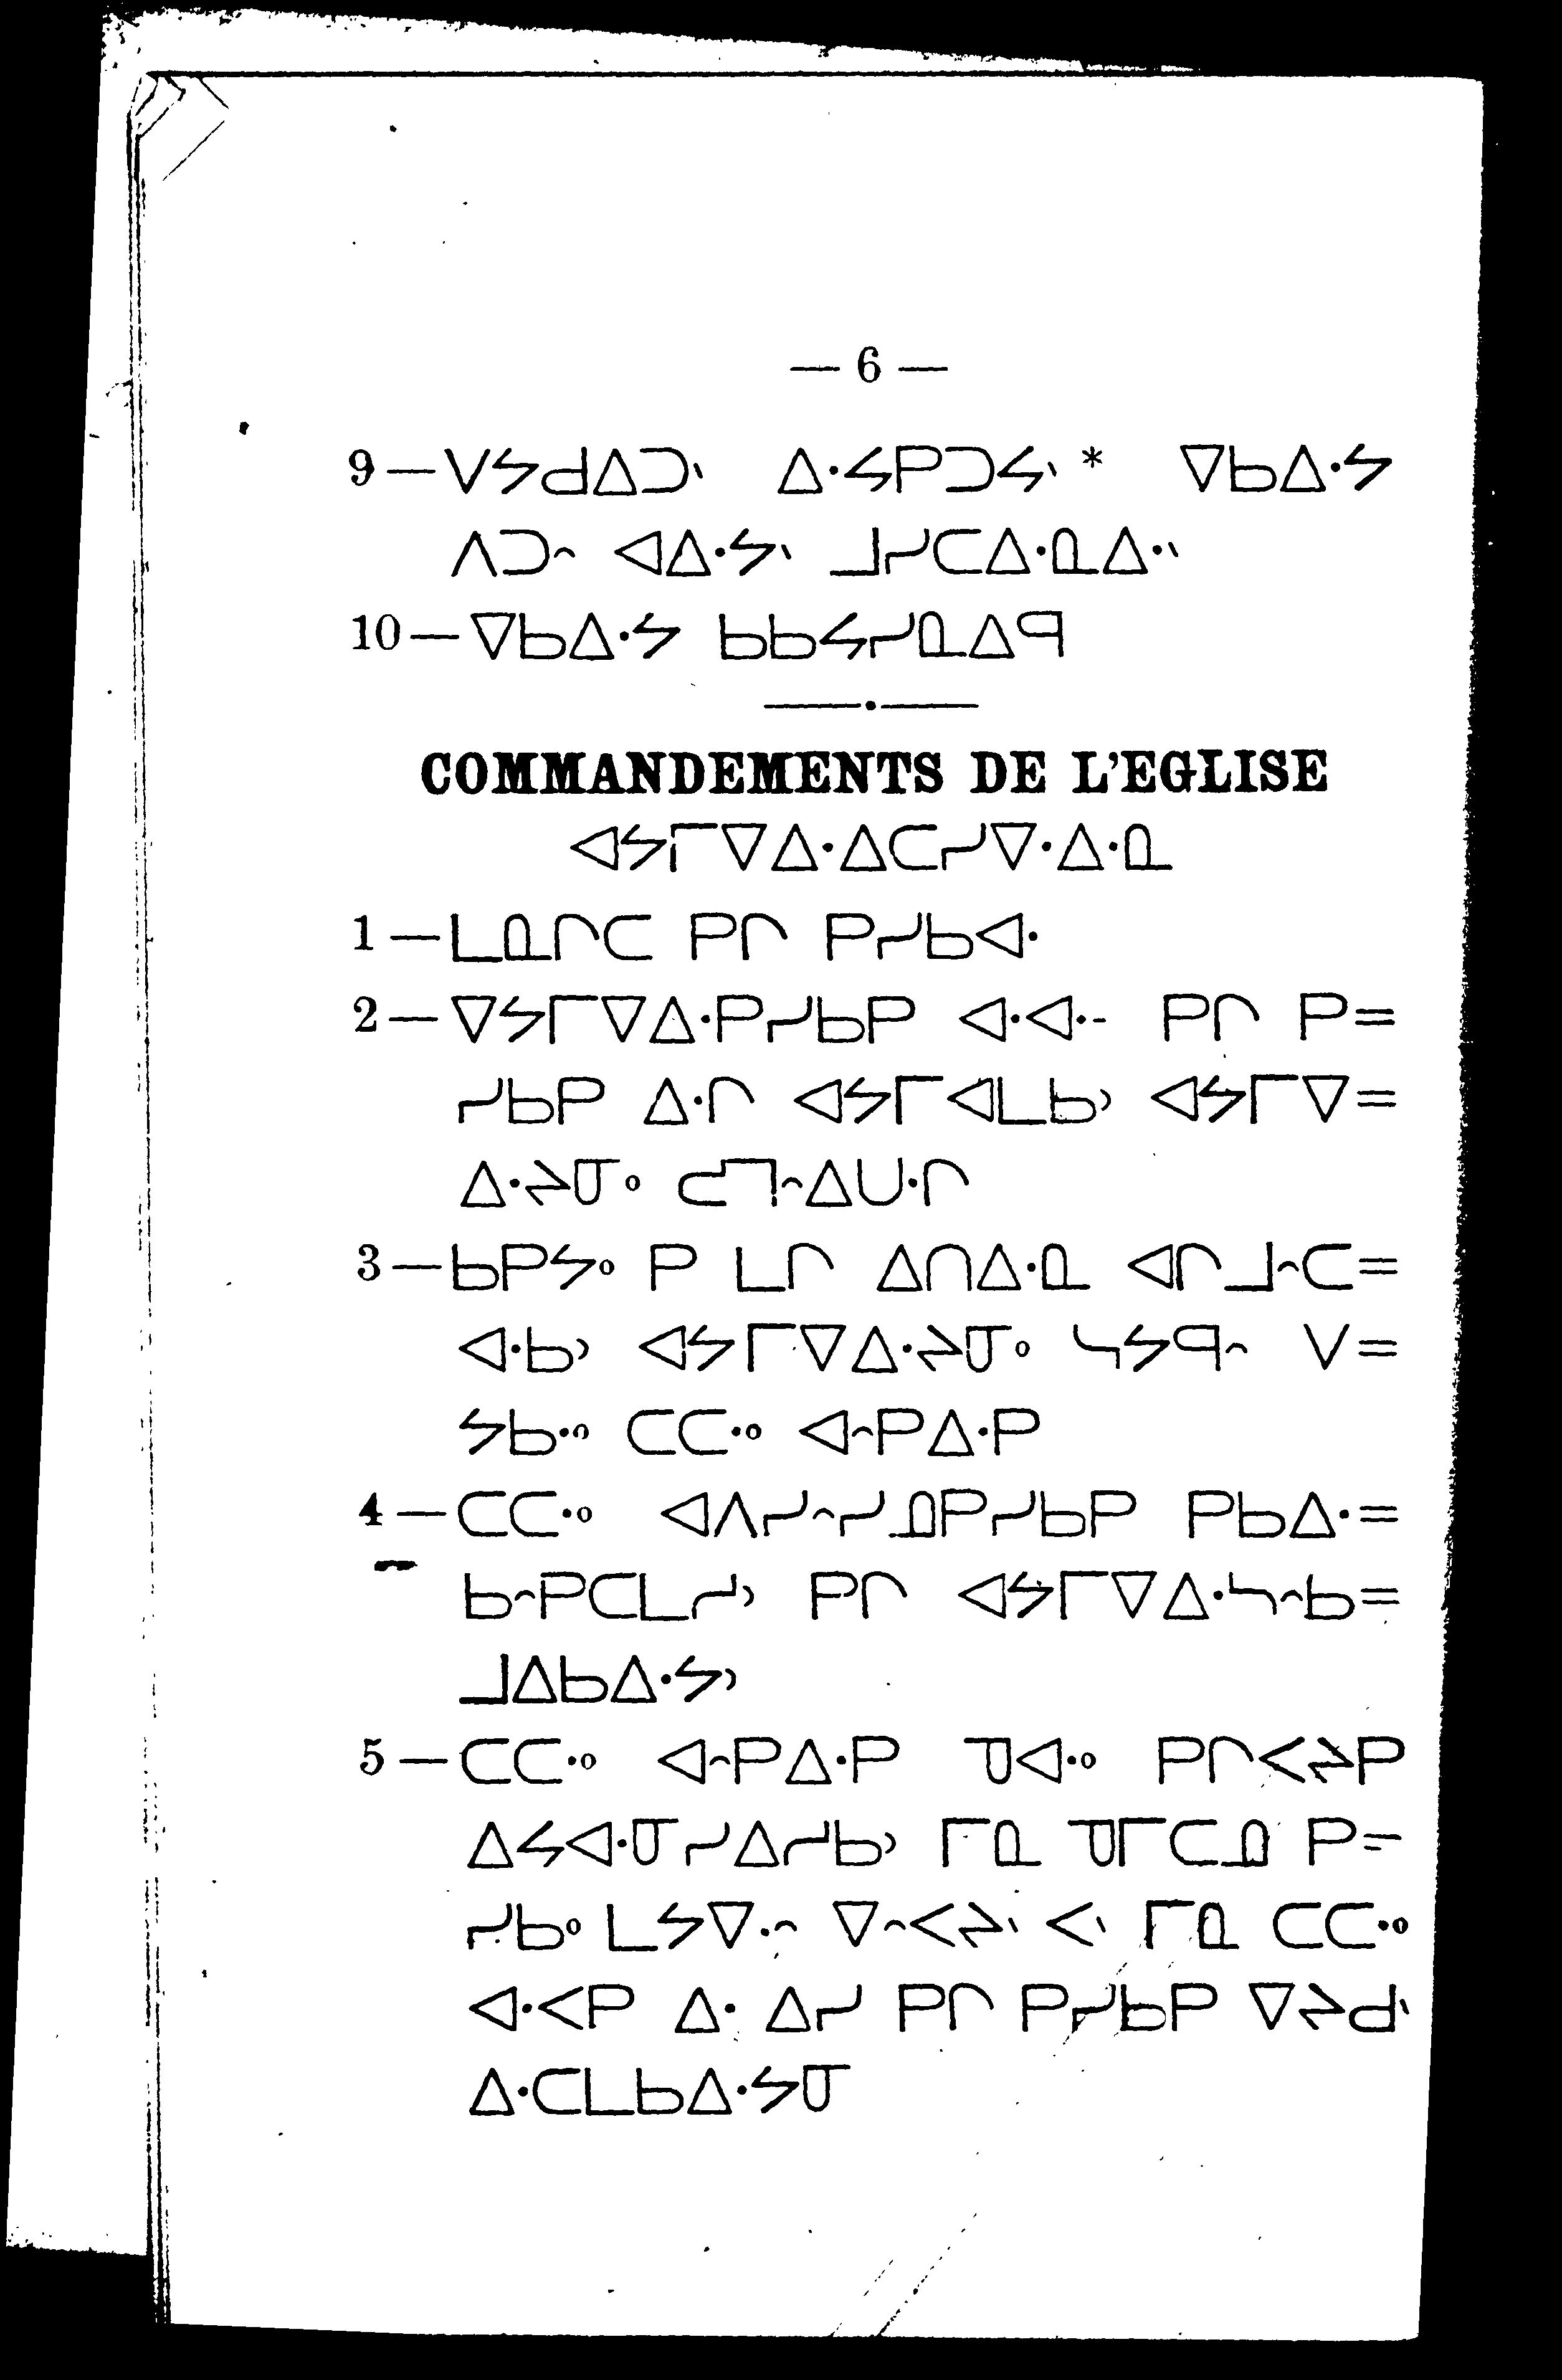 — 6 —
9 — ᐯᔭᑯᐃᑐᐠ ᐃᐧᔦᑭᑐᔦᐠ * ᐁᑲᐃᐧᔭ
ᐱᑐᐢ ᐊᐃᐧᔭᐠ ᒧᓯᑕᐃᐧᓇᐃᐧᐠ
10 — ᐁᑲᐃᐧᔭ ᑲᑲᔦᓯᓇᐃᑫ
COMMANDEMENTS DE L'EGLISE
ᐊᔭᒥᐁᐃᐧᐃᑕᓯᐁᐧᐃᐧᓇ
1 — ᒪᓇᒋᑕ ᑭᒋ ᑭᓯᑲᐊᐧ
2 — ᐁᔭᒥᐁᐃᐧᑭᓯᑲᑭ ᐊᐧᐊᐧ- ᑭᒋ ᑭ=
ᓯᑲᑭ ᐃᐧᒋ ᐊᔭᒥᐊᒪᑲᐣ ᐊᔭᒥᐁ=
ᐃᐧᔨᓂᐤ ᑕᒣᐢᐃᑌᐧᒋ
3 — ᑲᑭᔭᐤ ᑭ ᒪᒋ ᐃᑎᐃᐧᓇ ᐊᒋᒧᐢᑕ=
ᐊᐧᑲᐣ ᐊᔭᒥᐁᐃᐧᔨᓂᐤ ᓴᔭᑫᐢ ᐯ=
ᔭᑲᐧᐤ ᑕᑕᐧᐤ ᐊᐢᑭᐃᐧᑭ
4 — ᑕᑕᐧᐤ ᐊᐱᓯᐢᓯᓄᑭᓯᑲᑭ ᑭᑲᐃᐧ=
ᑲᐢᑭᑕᒪᓱᐣ ᑭᒋ ᐊᔭᒥᐁᐃᐧᓴᐢᑲ=
ᒧᐃᑲᐃᐧᔭᐣ
5 — ᑕᑕᐧᐤ ᐊᐢᑭᐃᐧᑭ ᓀᐊᐧᐤ ᑭᒋᐸᔨᑭ
ᐃᔦᐊᐧᓂᓯᐃᓱᑲᐣ ᒥᓇ ᓀᒥᑕᓄ ᑭ=
ᓯᑲᐤ ᒪᔭᐁᐧᐢ ᐁᐢᐸᔨᐠ ᐸᐠ ᒥᓇ ᑕᑕᐧᐤ
ᐊᐧᐸᑭ ᐃᐧ ᐃᓯ ᑭᒋ ᑭᓯᑲᑭ ᐁᔨᑯᐠ
ᐃᐧᑕᒪᑲᐃᐧᔭᓂ